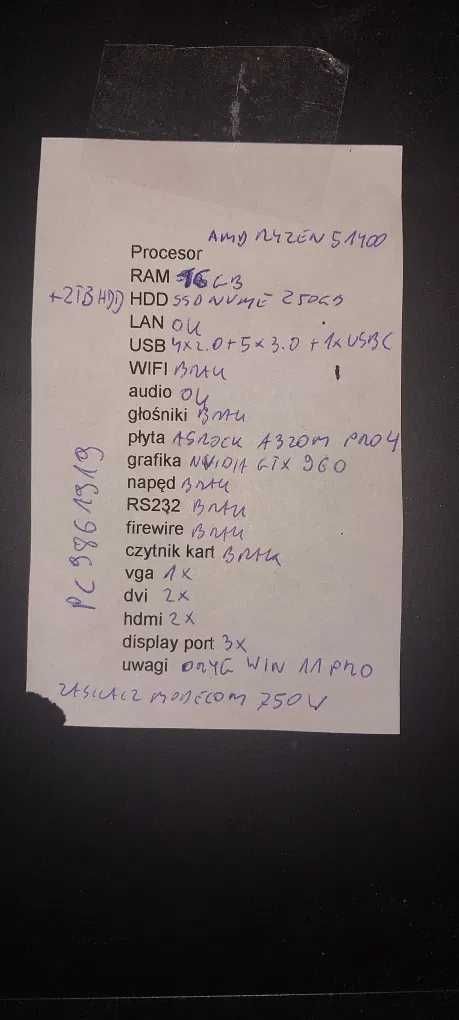 AMD RYZEN 5 1400
Procesor
RAM 16 GB
+2TB HDD HDD SSD NVME 250GB
LAN OK
USB 4x2.0+5x3.0 +1xUSBC
WIFI BRAK
audio OK
głośniki BRAK
płyta ASROCK A320M PRO4
grafika NVIDIA GTX 960
napęd BRAK
RS232 BRAK
firewire BRAK
czytnik kart BRAK
vga 1x
dvi 2x
hdmi 2x
display port 3x
uwagi ORYG WIN 11 PRO
ZASILACZ MODECOM 750W
PC9861919